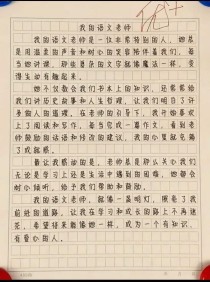 我的语文老师
我的语文老师是一位非常特别的人，她总
是用温柔的声音和耐心的笑容陪伴着我们。每
当她讲课，那些普通的文字就像魔法一样，变
得生动有趣起来。
她不仅教会我们书本上的知识，还常常给
我们讲历史故事和人生哲理，让我们明白了许
多做人的道理。在老师的引导下，我开始喜欢
上了阅读和写作。每当我完成一篇作文，看到
老师认真的批注和修改的建议，我的心里就充满
了成就感。
最让我感动的是，老师总是那么关心我们
无论是学习上还是生活中遇到的困难，她都会
耐心倾听，给予我们帮助和鼓励。
我的语文老师，就像一盏明灯，照亮了我
前进的道路，让我在学习和成长的路上不再迷
茫。希望将来能像她一样，成为一个有知识、
有爱心的人。